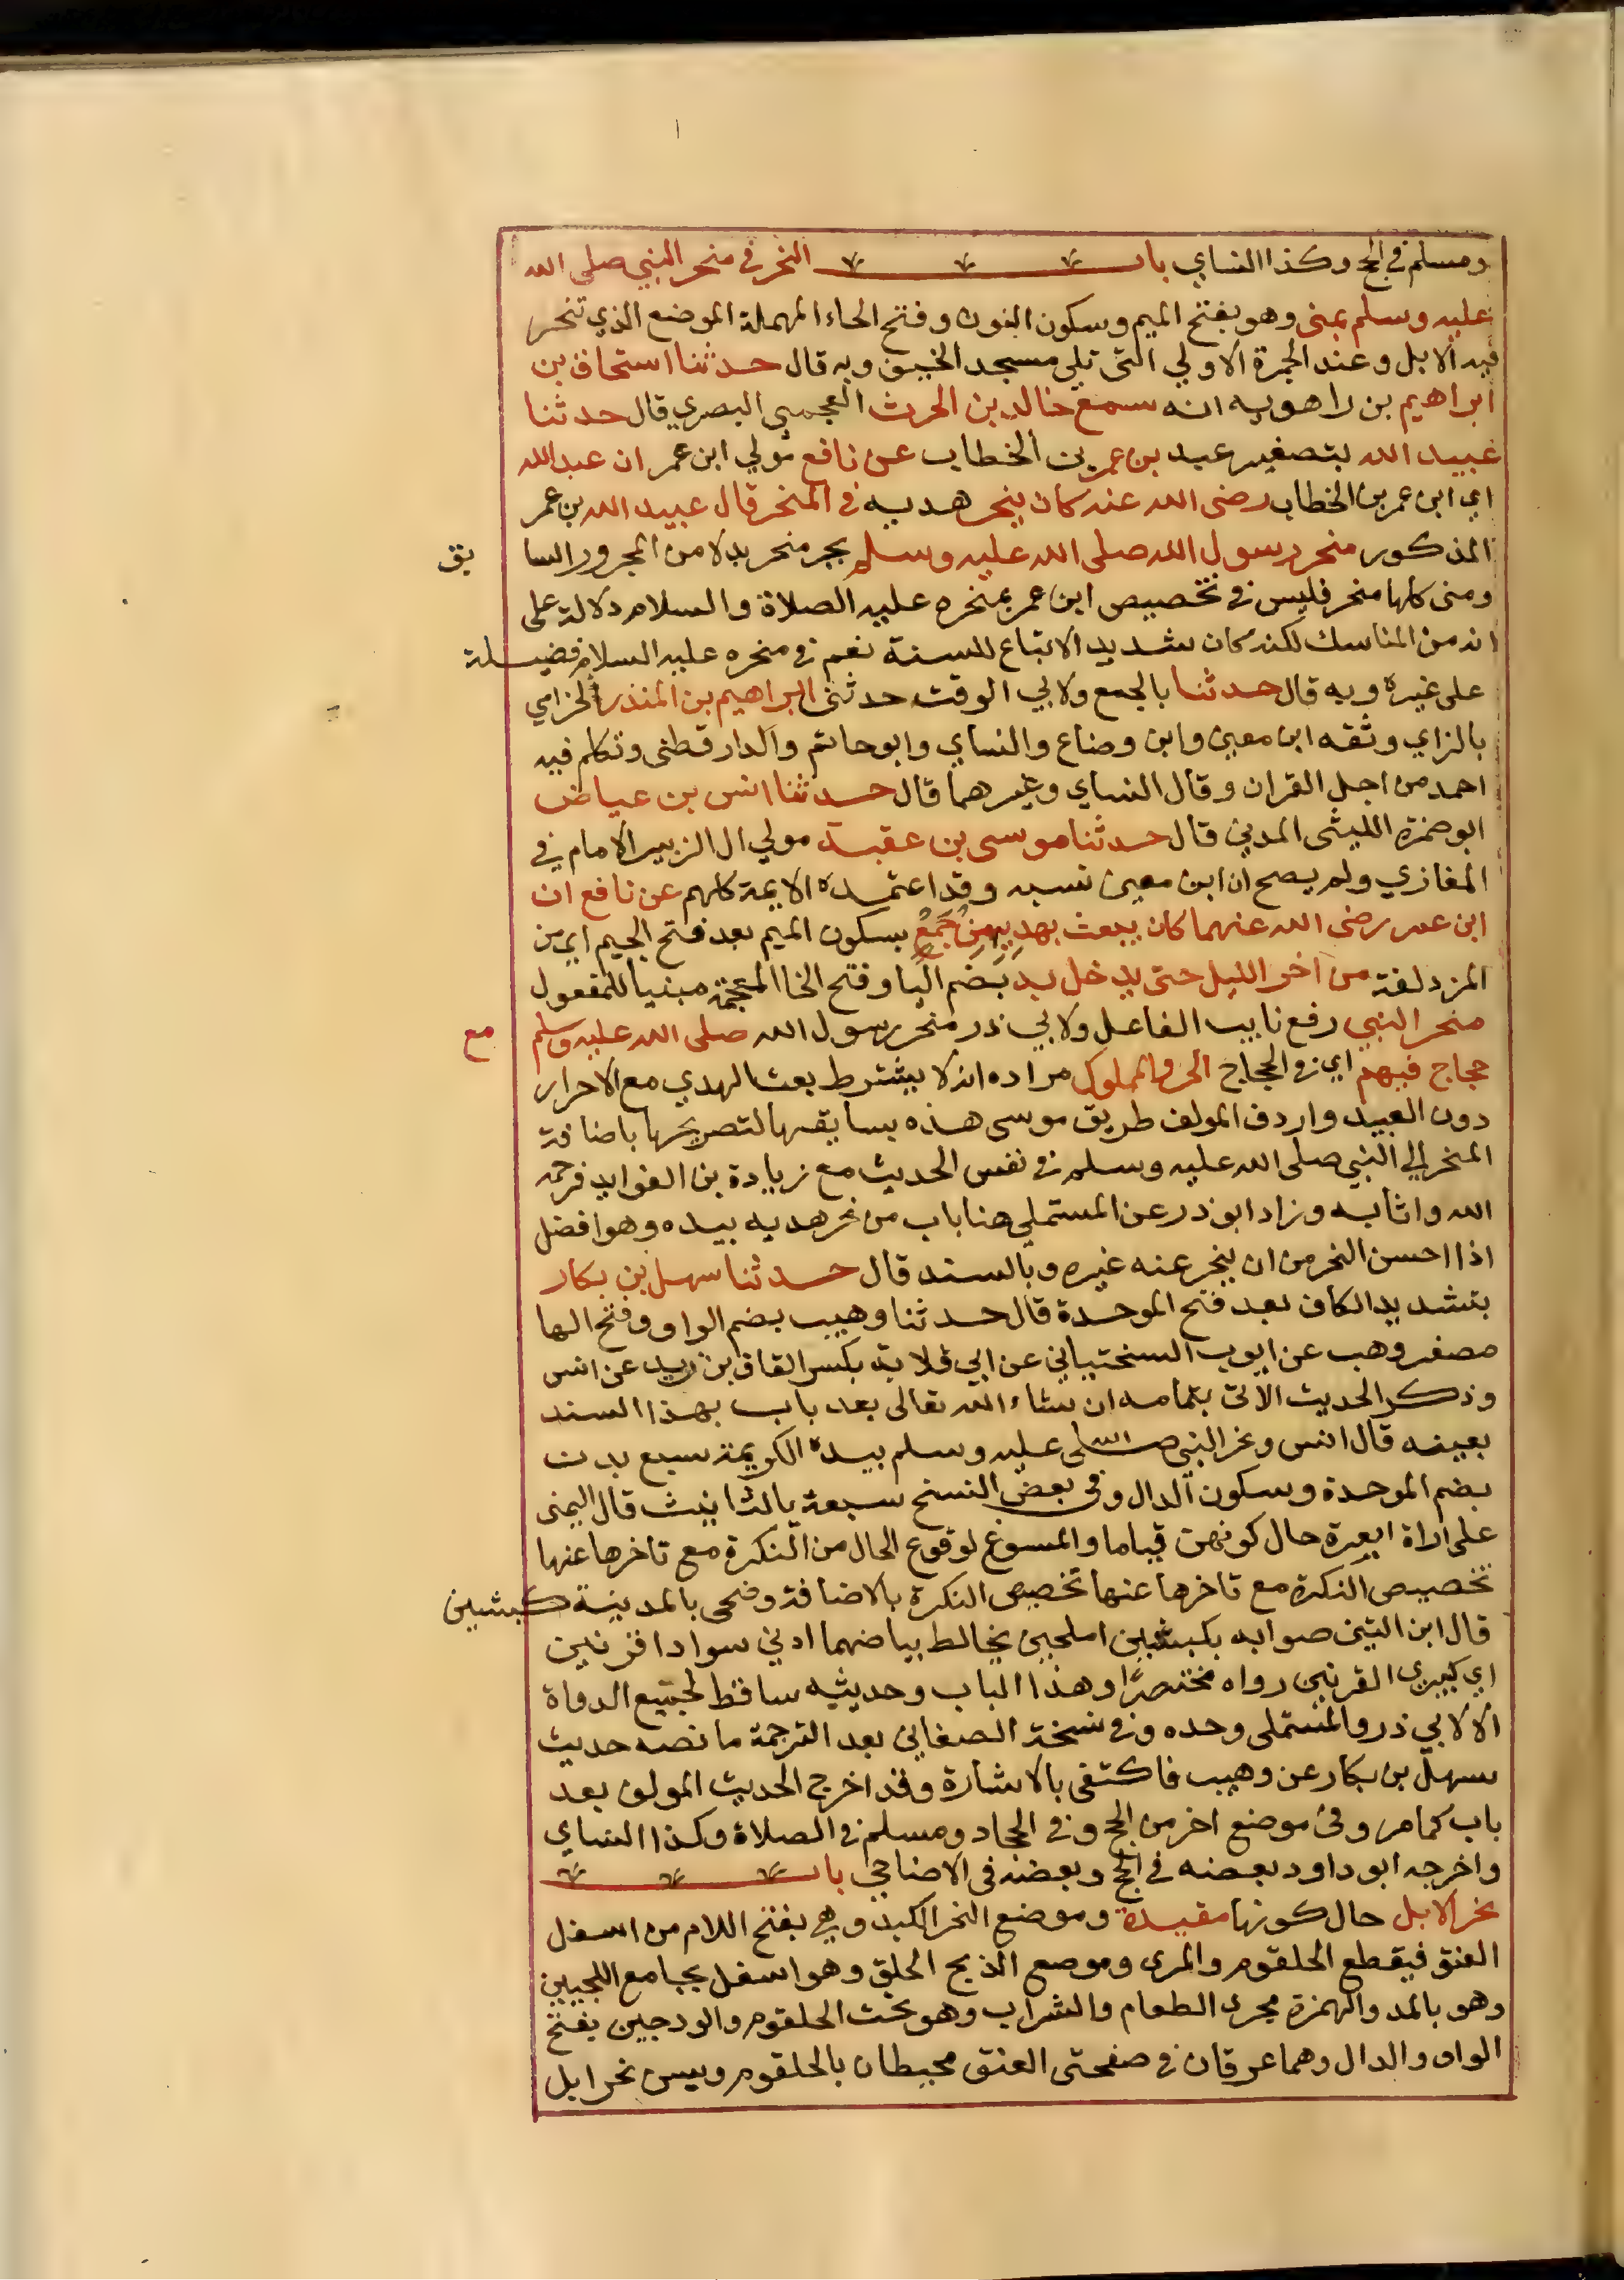 ومسلم في الحج وكذا النساي باب النحر في منحر النبي صلى الله
عليه وسلم بمنى وهو بفتح الميم وسكون النون وفتح الحاء المهملة الموضع الذي تنحر
فيه الابل وعند الجمرة الاولي التى تلي مسجد الخيف وبه قال حدثنا اسحاق بن
ابراهيم بن راهويه انه سمع خالد بن الحرث الهجيمي البصري قال حدثنا
عبيد الله بتصغير عبد بن عمر بن الخطاب عن نافع مولي ابن عمر ان عبد الله
اي ابن عمر بن الخطاب رضى الله عنه كان ينحر هديه في المنحر قال عبيد الله بن عمر
المذكور منحر رسول الله صلى الله عليه وسلم بجر منحر بدلا من المجرور السا بق
ومنى كلها منحر فليس في تخصيص ابن عمر بمنحره عليه الصلاة والسلام دلالة على
انه من المناسك لكنه كان شديد الاتباع للسنة نعم في منحره عليه السلام فضيلة
على غيره وبه قال حدثنا بالجمع ولابي الوقت حدثنى ابراهيم بن المنذر الحزامي
بالزاي وثقه ابن معين وابن وضاع والنساي وابوحاتم والدارقطنى وتكلم فيه
احمد من اجل القران وقال النساي وغيرهما قال حدثنا انس بن عياض
ابو ضمزة الليثى المدني قال حدثنا موسى بن عقبة مولي ال الزبير الامام في
المغازي ولم يصح ان ابن معين نسبه وقد اعتمده الايمة كلهم عن نافع ان
ابن عمر رضى الله عنهما كان يبعث بهديه من جمع بسكون الميم بعد فتح الجيم اي من
المزدلفة من اخر الليل حتى يدخل به بضم اليا وفتح الخا المعجمة مبنيا للمفعول
منحر النبي رفع نايب الفاعل ولابي ذر منحر رسول الله صلى الله عليه وسلم مع
حجاج فيهم اي في الحجاج الحر والمملوك مراده انه لا يشترط بعث الهدي مع الاحرار
دون العبيد واردف المولف طريق موسى هذه بسابقها لتصريحها باضافة
المنحر الي النبي صلى الله عليه وسلم في نفس الحديث مع زيادة من الفوايد فرحمه
الله واثابه وزاد ابو ذر عن المستملي هنا باب من نحر هديه بيده وهو افضل
اذا احسن النحر من ان ينحر عنه غيره وبالسند قال حدثنا سهل بن بكار
بتشديد الكاف بعد فتح الموحدة قال حدثنا وهيب بضم الواو وفتح الها
مصغر وهب عن ايوب السختياني عن ابي قلابة بكسر القاف بن زيد عن انس
وذكر الحديث الاتى بتمامه ان شاء الله تعالى بعد باب بهذا السند
بعينه قال انس ونحر النبي صلى الله عليه وسلم بيده الكريمة سبع بدن
بضم الموحدة وسكون الدال وفى بعض النسخ سبعة بالتانيث قال اليمنى
على اراة ابعرة حال كونهن قياما والمسوغ لوقوع الحال من النكرة مع تاخرها عنها
تخصيص النكرة مع تاخرها عنها تخصيص النكرة بالاضافة وضحى بالمدينة كبشين
قال ابن التين صوابه بكبشين املحين يخالط بياضهما ادني سواد اقرنين
اي كبيرى القرنين رواه مختصرا وهذا الباب وحديثه ساقط لجميع الرواة
الا لابي ذر والمستملى وحده وفي نسخة الصغاني بعد الترجمة ما نصه حديث
سهل بن بكار عن وهيب فاكتفى بالاشارة وقد اخرج الحديث المولف بعد
باب كمامر وفى موضع اخر من الحج وفي الجهاد ومسلم في الصلاة وكذا النساي
واخرجه ابو داود بعضه في الحج وبعضه في الاضاحي باب
نحر الابل حال كونها مقيدة وموضع النحر الكبد وهي بفتح اللام من اسفل
العنق فيقطع الحلقوم والمرى وموضع الذبح الحلق وهو اسفل مجامع اللحيين
وهو بالمد والهمزة مجرى الطعام والشراب وهو تحت الحلقوم والودجين بفتح
الواو والدال وهما عرقان في صفحتى العنق محيطان بالحلقوم ويسن نحر ابل